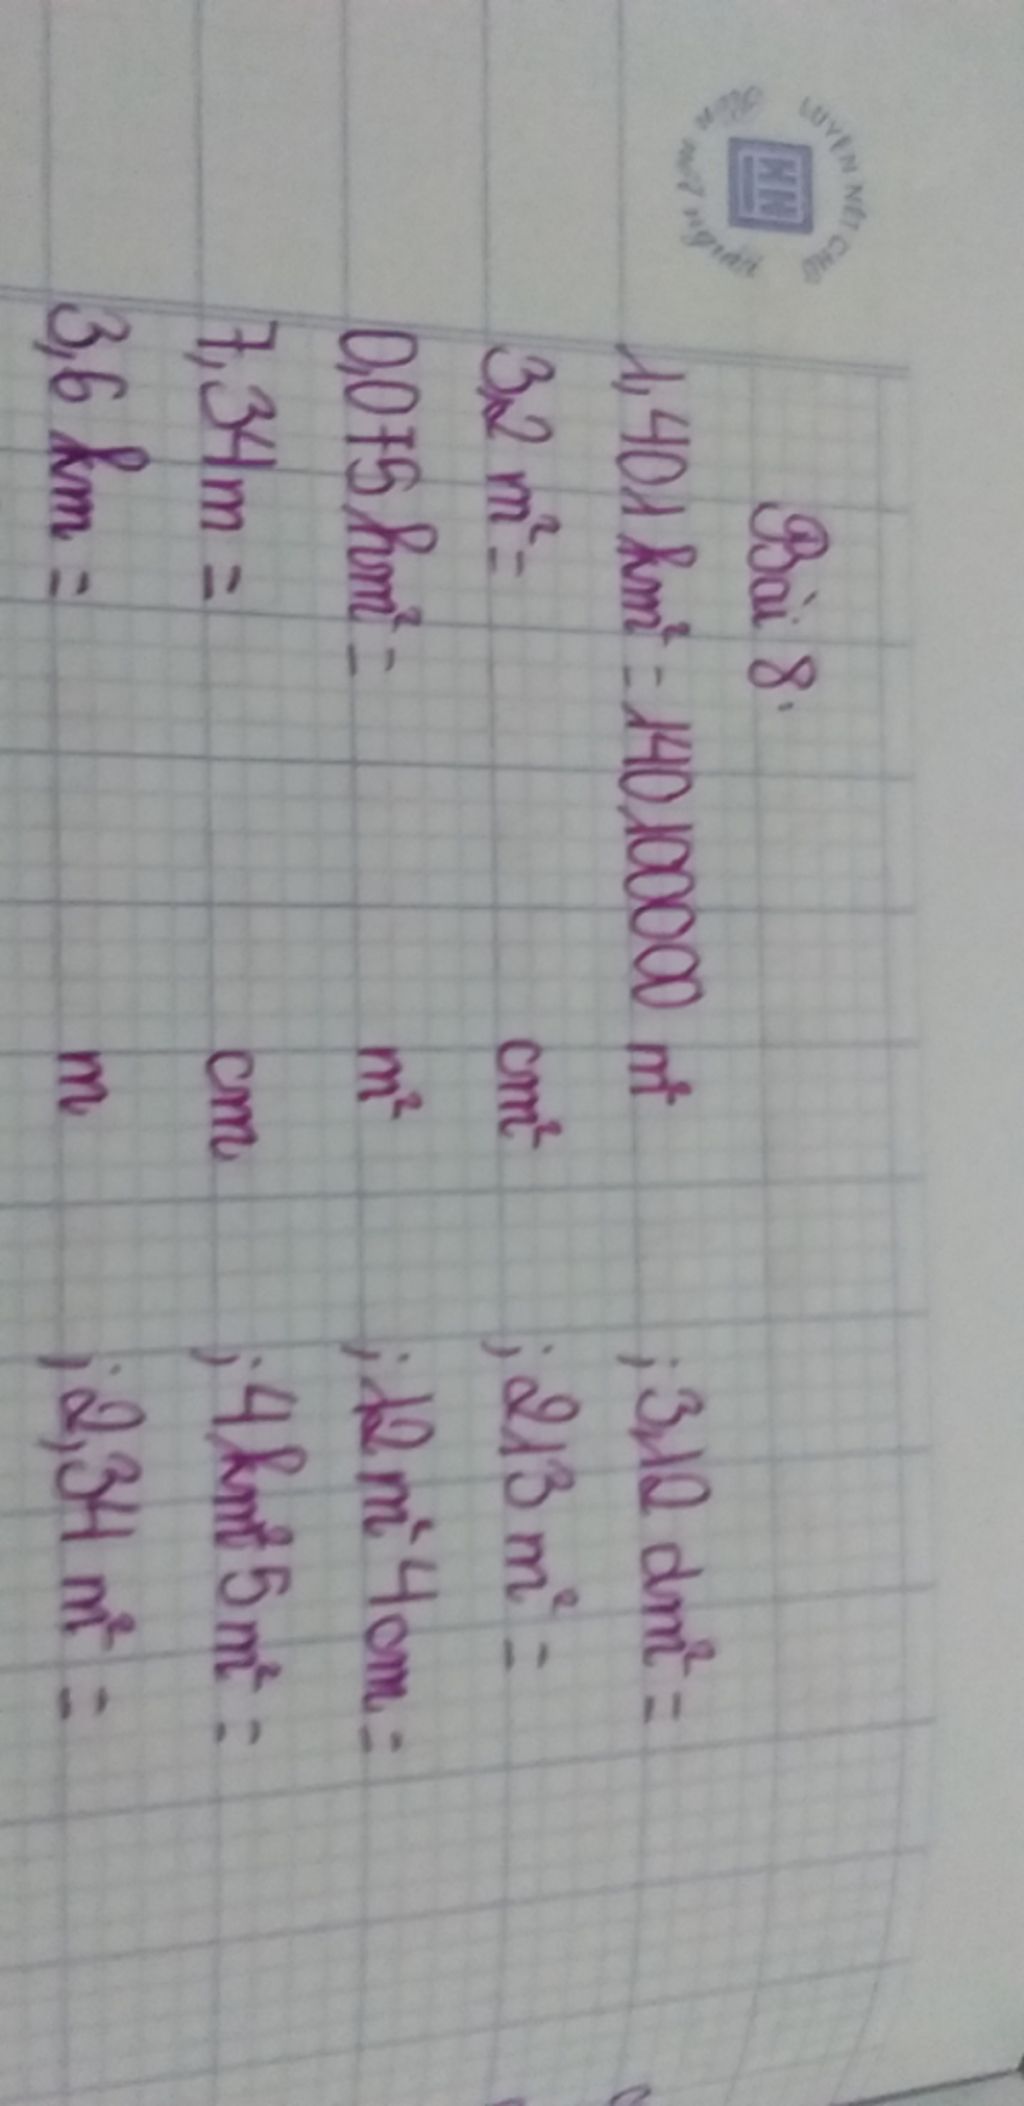 LUYỆN NÉT CHỮ
KN
Bài 8:
1,401 km² = 140,100000 m² ; 3,12 dm² =
3,2 m² = cm² ; 213 m² =
0,075 hm² = m² ; 12 m² 4 cm =
7,34 m = cm ; 4 km² 5 m² =
3,6 km = m ; 2,34 m² =